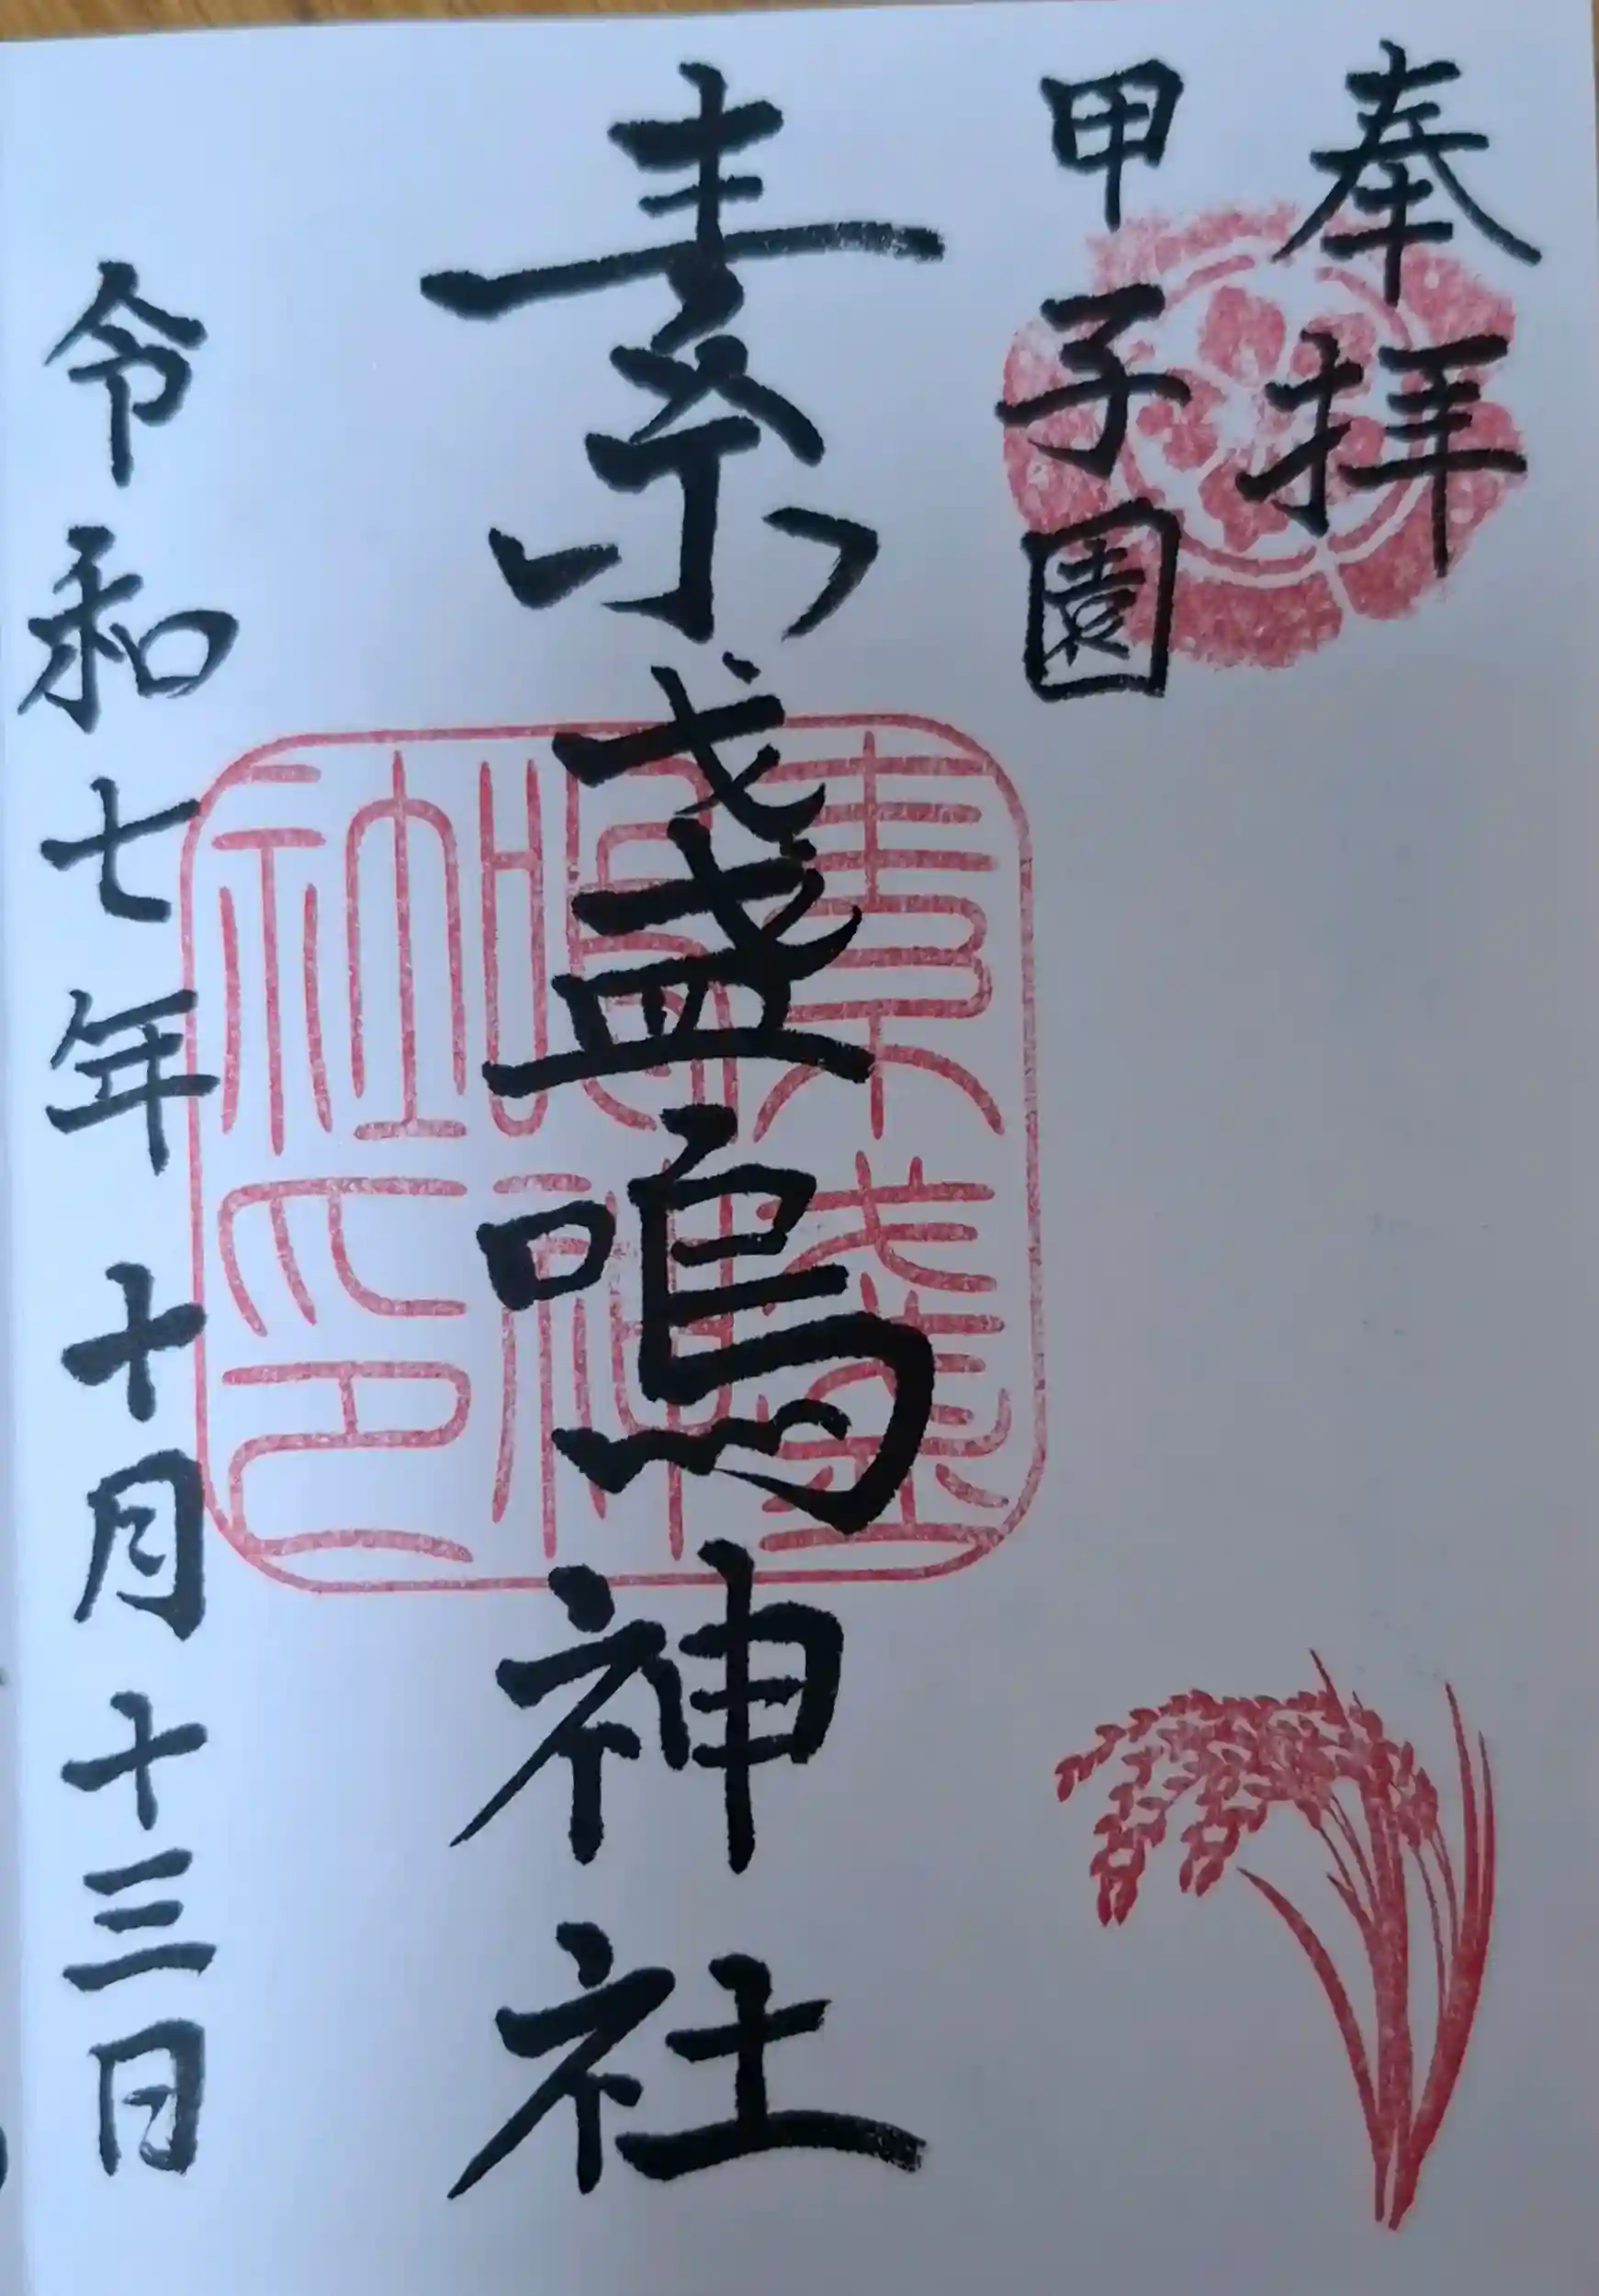 奉拝
甲子園
素盞嗚神社
令和七年十月十三日
素盞
嗚神
社印